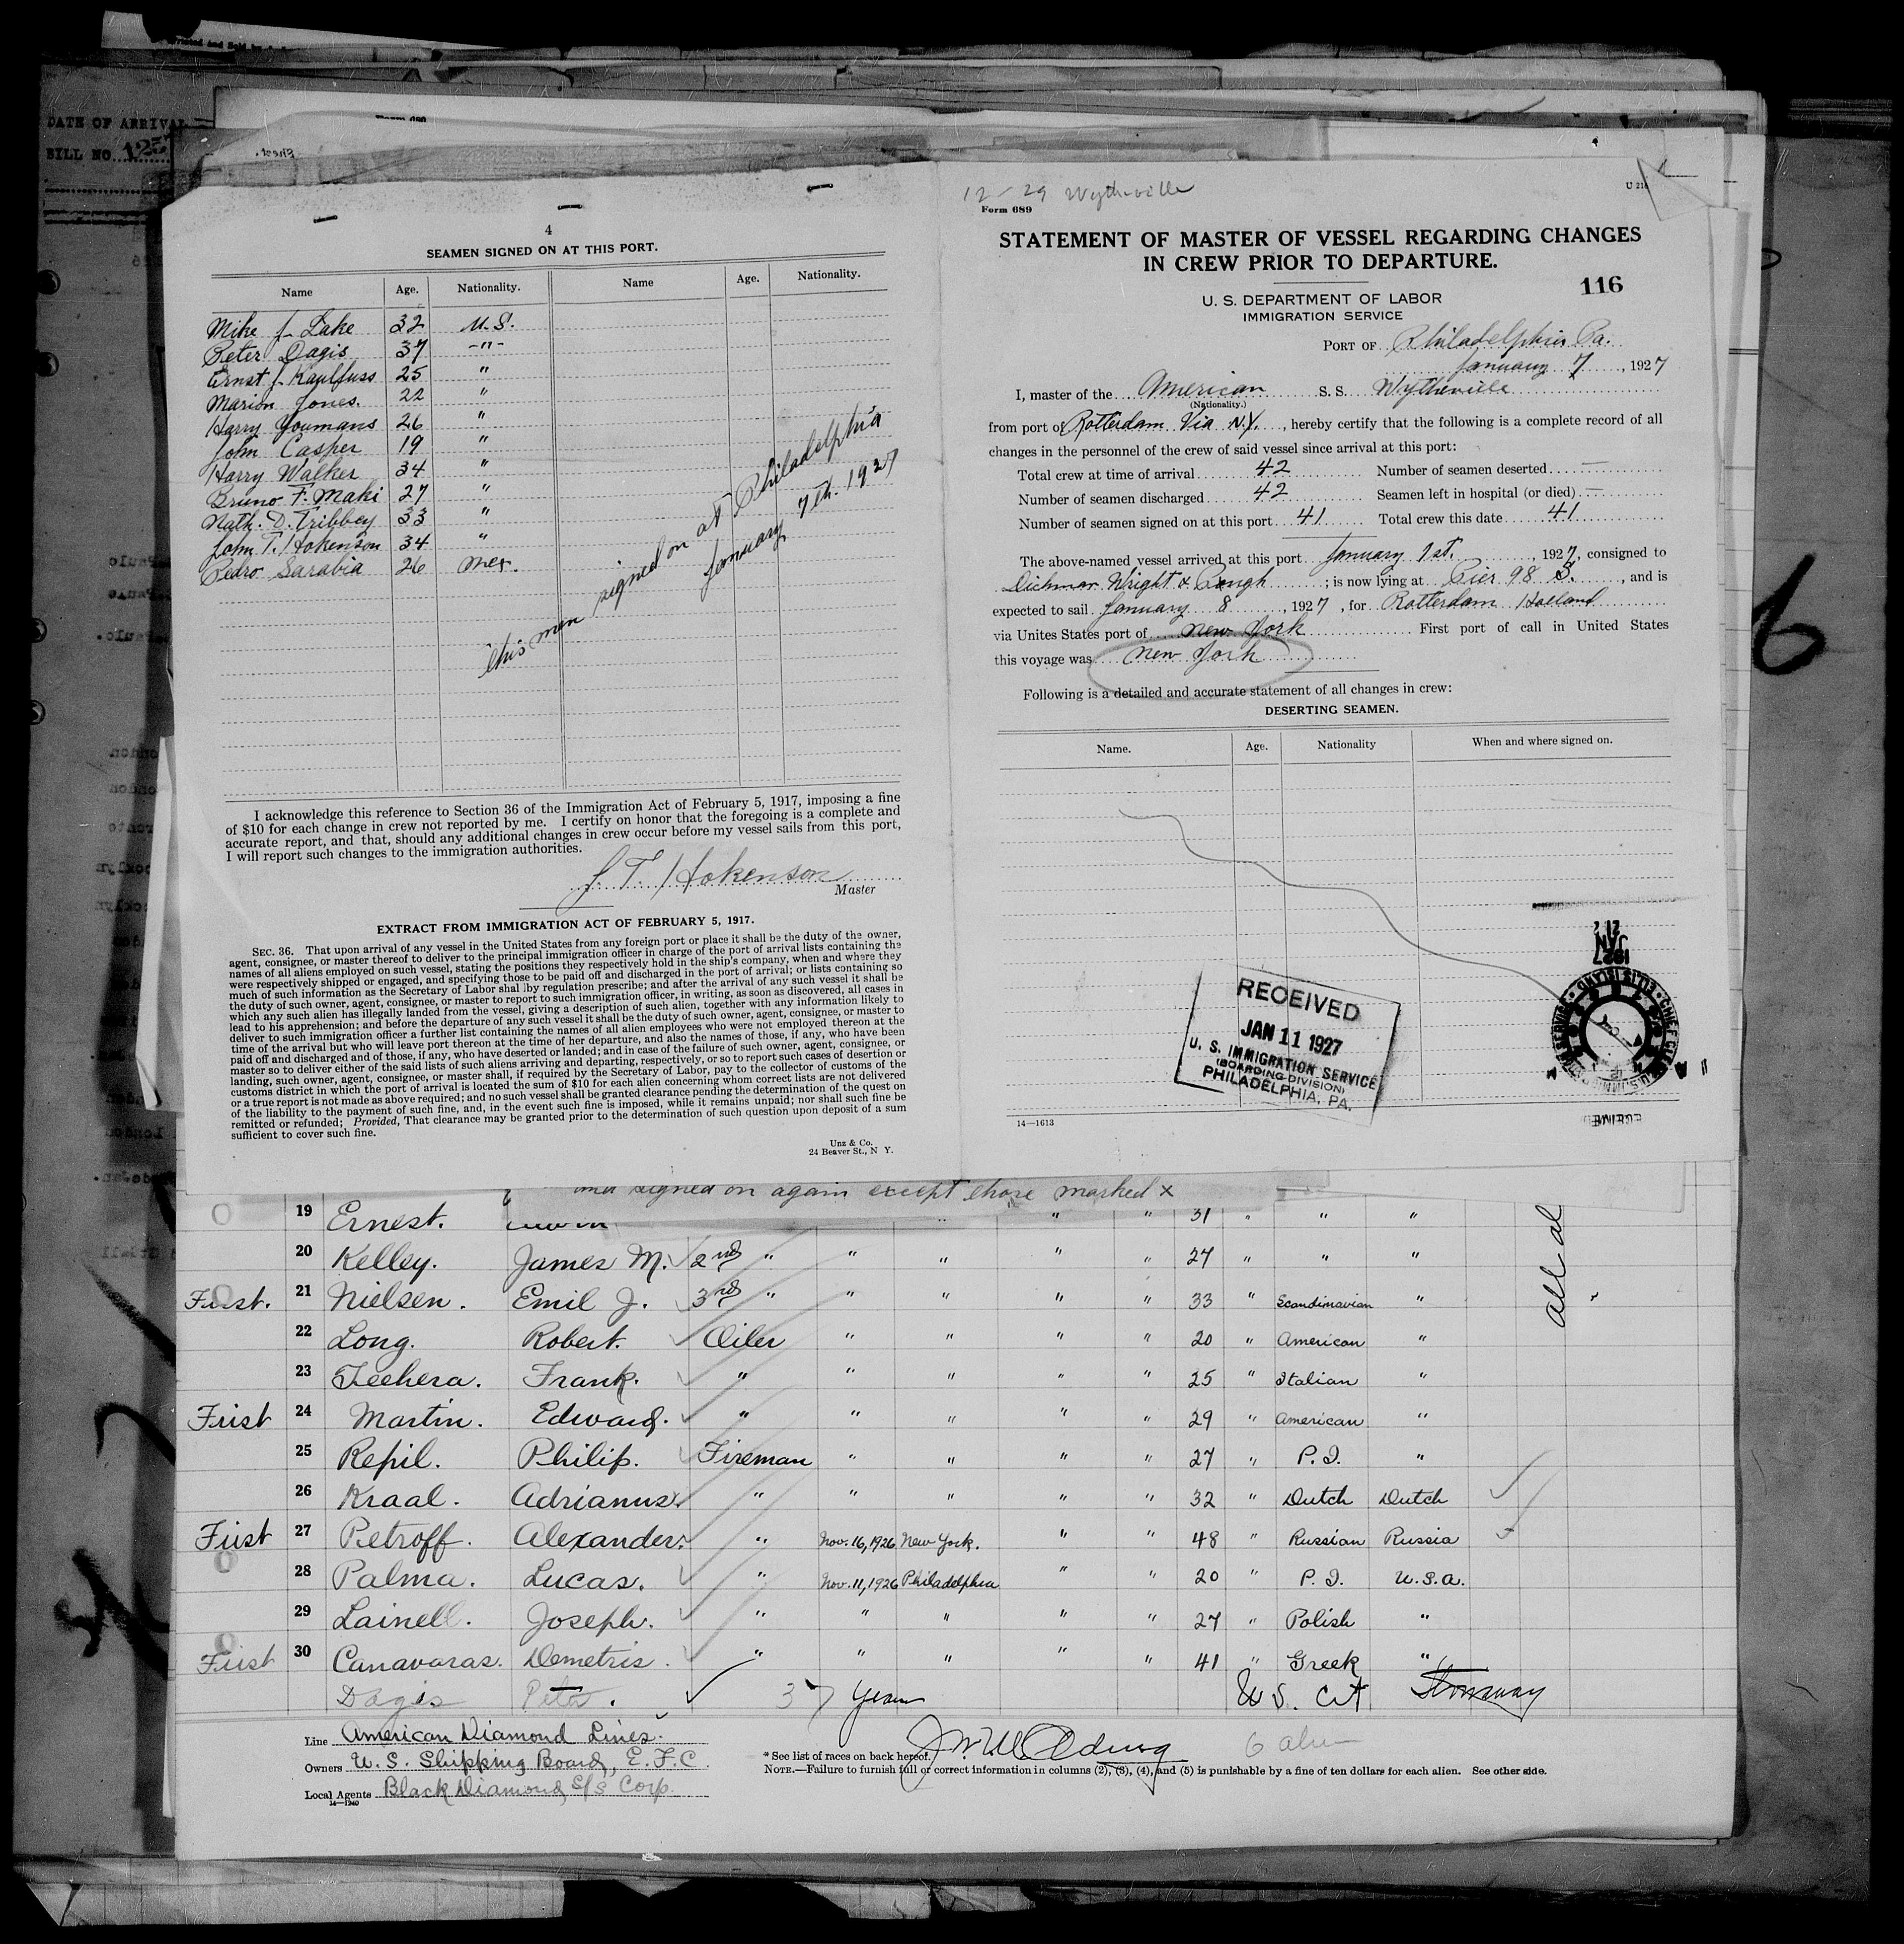 DATE OF ARRIVAL
BILL NO. 125
4
SEAMEN SIGNED ON AT THIS PORT.
Name Age. Nationality. Name Age. Nationality.
Mike J. Lake 32 U.S.
Peter Dagis 37 -"-
Ernst J. Kaulfuss 25 "
Marion Jones. 22 "
Harry Youmans 26 "
John Casper 19 "
Harry Walker 34 "
Bruno F. Maki 27 "
Nath. D. Tribbey 33 "
John T. Hokenson 34 "
Pedro Sarabia 26 Mex.
this men signed on at Philadelphia
January 7th. 1927
I acknowledge this reference to Section 36 of the Immigration Act of February 5, 1917, imposing a fine
of $10 for each change in crew not reported by me. I certify on honor that the foregoing is a complete and
accurate report, and that, should any additional changes in crew occur before my vessel sails from this port,
I will report such changes to the immigration authorities.
J. T. Hokenson
Master
EXTRACT FROM IMMIGRATION ACT OF FEBRUARY 5, 1917.
SEC. 36. That upon arrival of any vessel in the United States from any foreign port or place it shall be the duty of the owner,
agent, consignee, or master thereof to deliver to the principal immigration officer in charge of the port of arrival lists containing the
names of all aliens employed on such vessel, stating the positions they respectively hold in the ship's company, when and where they
were respectively shipped or engaged, and specifying those to be paid off and discharged in the port of arrival; or lists containing so
much of such information as the Secretary of Labor shal lby regulation prescribe; and after the arrival of any such vessel it shall be
the duty of such owner, agent, consignee, or master to report to such immigration officer, in writing, as soon as discovered, all cases in
which any such alien has illegally landed from the vessel, giving a description of such alien, together with any information likely to
lead to his apprehension; and before the departure of any such vessel it shall be the duty of such owner, agent, consignee, or master to
deliver to such immigration officer a further list containing the names of all alien employees who were not employed thereon at the
time of the arrival but who will leave port thereon at the time of her departure, and also the names of those, if any, who have been
paid off and discharged and of those, if any, who have deserted or landed; and in case of the failure of such owner, agent, consignee, or
master so to deliver either of the said lists of such aliens arriving and departing, respectively, or so to report such cases of desertion or
landing, such owner, agent, consignee, or master shall, if required by the Secretary of Labor, pay to the collector of customs of the
customs district in which the port of arrival is located the sum of $10 for each alien concerning whom correct lists are not delivered
or a true report is not made as above required; and no such vessel shall be granted clearance pending the determination of the quest on
of the liability to the payment of such fine, and, in the event such fine is imposed, while it remains unpaid; nor shall such fine be
remitted or refunded; Provided, That clearance may be granted prior to the determination of such question upon deposit of a sum
sufficient to cover such fine.
Unz & Co.
24 Beaver St., N Y.
12 - 29 Wytheville
Form 689
U 216
STATEMENT OF MASTER OF VESSEL REGARDING CHANGES
IN CREW PRIOR TO DEPARTURE.
116
U. S. DEPARTMENT OF LABOR
IMMIGRATION SERVICE
PORT OF Philadelphia Pa.
January 7, 1927
I, master of the American S. S. Wytheville
(Nationality.)
from port of Rotterdam Via N.Y., hereby certify that the following is a complete record of all
changes in the personnel of the crew of said vessel since arrival at this port:
Total crew at time of arrival 42 Number of seamen deserted —
Number of seamen discharged 42 Seamen left in hospital (or died) —
Number of seamen signed on at this port 41 Total crew this date 41
The above-named vessel arrived at this port January 1st., 1927, consigned to
Dichman Wright & Pough; is now lying at Pier 98 S., and is
expected to sail January 8, 1927, for Rotterdam Holland
via Unites States port of New York First port of call in United States
this voyage was New York
Following is a detailed and accurate statement of all changes in crew:
DESERTING SEAMEN.
Name. Age. Nationality When and where signed on.
RECEIVED
JAN 11 1927
U. S. IMMIGRATION SERVICE
(BOARDING DIVISION)
PHILADELPHIA, PA.
JAN
1927
14—1613
and signed on again except those marked x
19 Ernest. " " 31 " " "
20 Kelley. James M. 2nd " " " " " 27 " " "
First. 21 Nielsen. Emil J. 3rd " " " " " 33 " Scandinavian "
22 Long. Robert. Oiler " " " " 20 " American "
23 Techera. Frank. " " " " " 25 " Italian "
First 24 Martin. Edward. " " " " " 29 " American "
25 Repil. Philip. Fireman " " " " 27 " P.I. "
26 Kraal. Adrianus. " " " " " 32 " Dutch Dutch
First 27 Petroff. Alexander. " Nov. 16, 1926 New York. " " 48 " Russian Russia
28 Palma. Lucas. " Nov. 11, 1926 Philadelphia " " 20 " P.I. U.S.A.
29 Lainell. Joseph. " " " " " 27 " Polish "
First 30 Canavaras. Demetris. " " " " " 41 " Greek "
Dagis Peter. 37 years U S. Cit Stowaway
all al
Line American Diamond Lines.
Owners U. S. Shipping Board, E. F. C.
Local Agents Black Diamond S/S Corp.
14—1940
* See list of races on back hereof.
6 alien
NOTE.—Failure to furnish full or correct information in columns (2), (3), (4), and (5) is punishable by a fine of ten dollars for each alien. See other side.